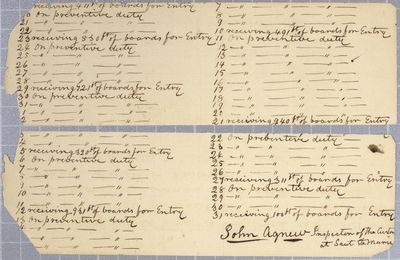 receiving 411 ft of boards for Entry
21 on preventive duty
22 — " — " — " —
23 receiving 830 ft of boards for Entry
24 on preventive duty
25 — " — " — " —
26 — " — " — " —
27 — " — " — " —
28 — " — " — " —
29 receiving 721 ft of boards for Entry
30 on preventive duty
31 — " — " — " —
1 — " — " — " —
2 — " — " — " —
3 — " — " — " —
4 — " — " — " —
5 receiving 320 ft of boards for Entry
6 on preventive duty
7 — " — " — " —
8 — " — " — " —
9 — " — " — " —
10 — " — " — " —
11 — " — " — " —
12 receiving 931 ft of boards for Entry
13 on preventive duty
— " — " — " —
— " — " — " —
7 — " — " — " —
8 — " — " — " —
9 — " — " — " —
10 receiving 491 ft of boards for Entry
11 on preventive duty
12 — " — " — " —
13 — " — " — " —
14 — " — " — " —
15 — " — " — " —
16 — " — " — " —
17 — " — " — " —
18 — " — " — " —
19 — " — " — " —
20 — " — " — " —
21 receiving 940 ft of boards for Entry
22 on preventive duty
23 — " — " — " —
24 — " — " — " —
25 — " — " — " —
26 — " — " — " —
27 receiving 311 ft of boards for Entry
28 on preventive duty
29 — " — " — " —
30 — " — " — " —
31 receiving 100 ft of boards for Entry
John Agnew Inspector of the
at Saut te Marie